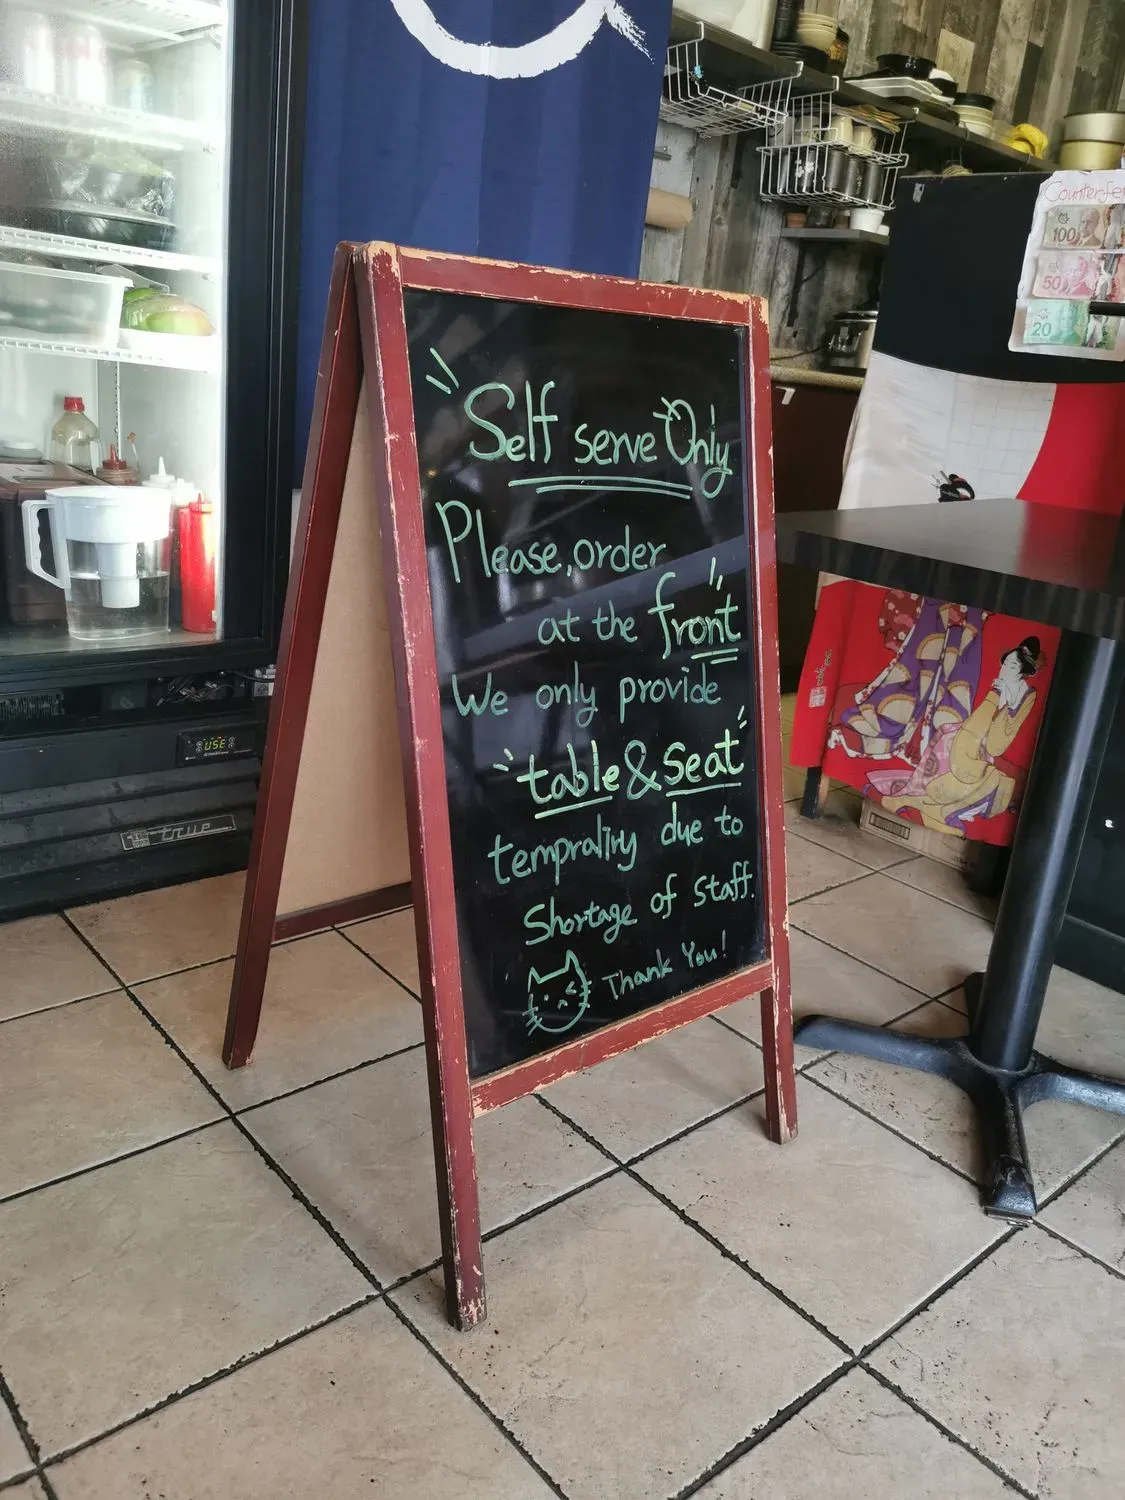 Self serve Only
Please, order
at the front
We only provide
table & Seat
tempraliry due to
Shortage of Staff.
Thank You!
Counterfei
100
50
20
USE
true